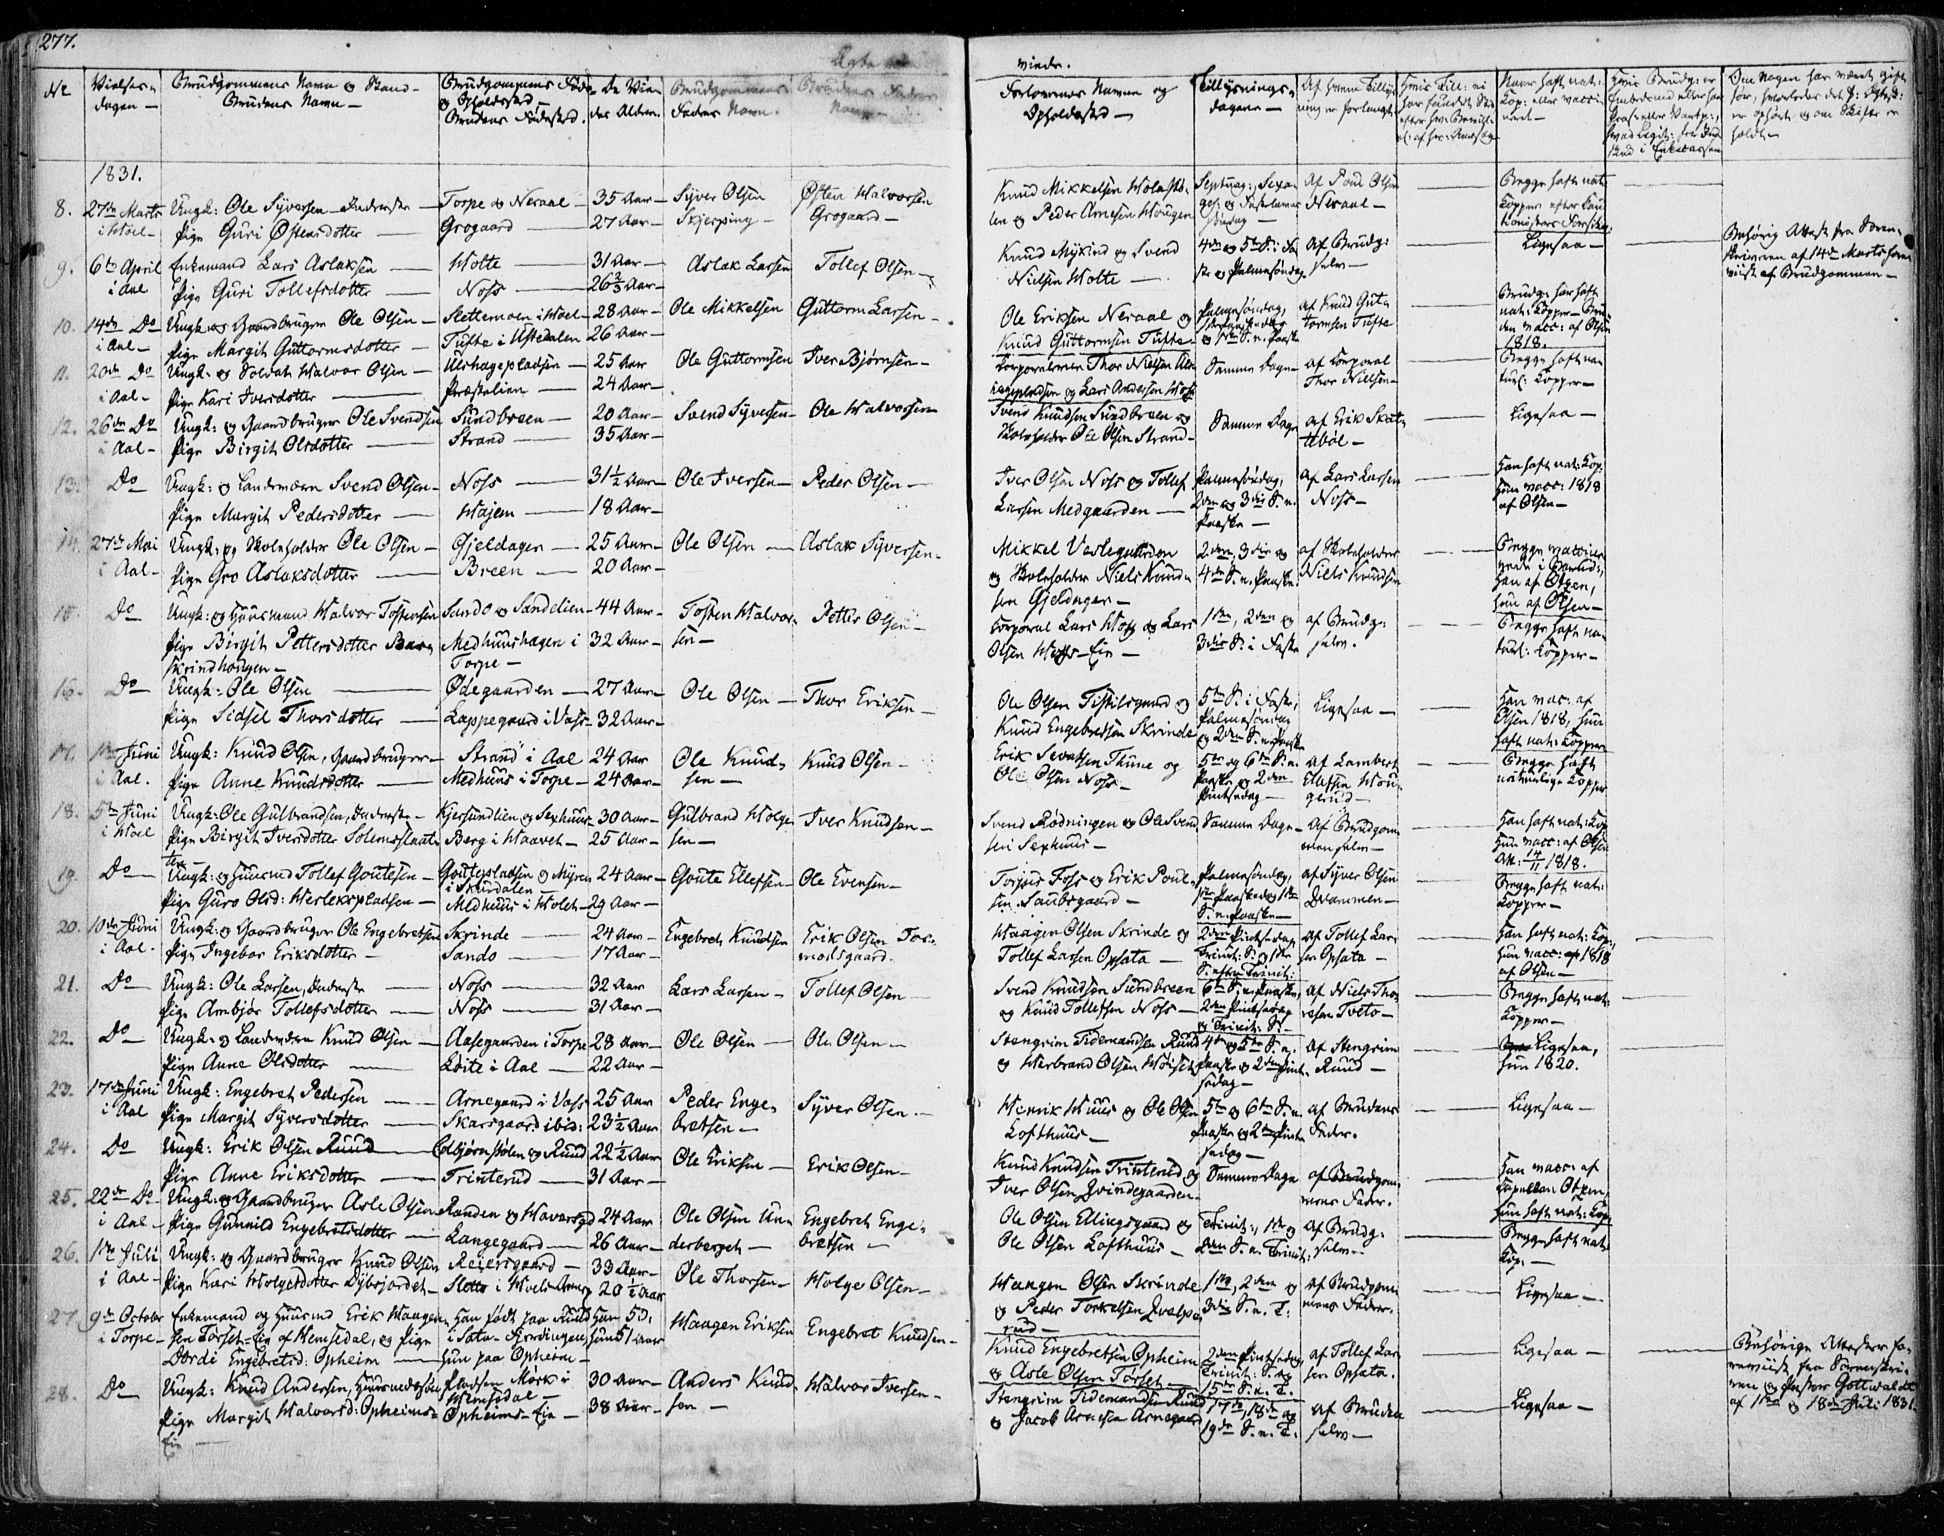 277.
viede.
No
Vielses-
dagen —
Brudgommens Navn og Stand —
Brudens Navn —
Brudgommens Føde-
og Opholdssted
Brudens Fødested.
De Vie-
des Alder.
Brudgommens
Faders Navn.
Brudens Faders
Navn —
Forlovernes Navne og
Opholdssted —
Tillysnings-
dagene —
Af hvem Tillys-
ning er forlangt.
1831.
8. 27de Marts
i Hoel —
Ungk: Ole Syversen Inderste —
Pige Guri Østensdotter —
Torpe og Neraal —
Grogaard —
35 Aar —
27 Aar —
Syver Olsen
Skjerping —
Østen Halvorsen
Grogaard —
Knud Mikkelsen Holesto-
len og Peder Arnesen Hougen
Septuag:, Sexa-
ges: og Fastelavns
Søndag —
Af Poul Olsen
Neraal —
Begge haft nat:
Kopper efter Lau-
9. 6te April
i Aal
Enkemand Lars Aslaksen —
Pige Guri Tollefsdotter —
Holte —
Noss —
31 Aar —
26 2/3 Aar —
Aslak Larsen
Tollef Olsen —
Knud Mykind og Svend
Nielsen Holte —
4de og 5te S: i Fa-
ste og Palmesøndag
af Brudg:
selv —
Ligesaa —
Behørig Attest fra Soren-
skriveren af 14de Marts fore-
viist af Brudgommen —
10. 14de Do
i Aal —
Ungk: og Gaardbruger Ole Olsen —
Pige Margit Guttormsdotter —
Slettemoen i Hoel —
Tufte i Ustedalen
28 Aar —
26 Aar —
Ole Mikkelsen
Guttorm Larsen —
Ole Eriksen Neraal og
Knud Guttormsen Tufte
Palmesøndag,
og 1ste S. n. Paaske
af Knud Gut-
tormsen Tufte
Brudg: har haft
nat: Kopper — Bru-
den vacc: af Olsen
1818.
11. 20de Do
i Aal —
Ungk: og Soldat Halvor Olsen —
Pige Kari Iversdotter —
Ulshagepladsen —
Præstelien —
25 Aar
24 Aar —
Ole Guttormsen
Iver Bjørnsen —
Corporalerne Thor Nielsen Uls-
hagepladsen og Lars Andersen Hoff
Samme Dage —
af Corporal
Thor Nielsen —
Begge haft na-
turl: Kopper —
12. 26de Do
i Aal —
Ungk: og Gaardbruger Ole Svendsen
Pige Birgit Olsdotter —
Sundbreen —
Strand —
20 Aar —
35 Aar —
Svend Syversen —
Ole Halvorsen
Svend Knudsen Sundbreen og
Skoleholder Ole Olsen Strand —
Samme Dage
af Erik Skat-
tebøl —
Ligesaa —
13. Do
Ungk: og Landeværn Svend Olsen —
Pige Margit Pedersdotter —
Noss —
Hajem —
31 1/2 Aar —
18 Aar —
Ole Iversen —
Peder Olsen —
Iver Olsen Noss og Tollef
Larsen Medgaarden —
Palmesøndag,
2den og 3die S. n.
Paaske —
af Lars Larsen
Noss —
Han haft nat: Kop.
Hun vacc: 1818
af Olsen —
14. 27de Mai
i Aal —
Ungk: og Skoleholder Ole Olsen —
Pige Gro Aslaksdotter —
Gjeldager —
Breen —
25 Aar —
20 Aar —
Ole Olsen —
Aslak Syversen —
Mikkel Veslegaarden
og Skoleholder Niels Knud-
sen Gjeldager —
2den, 3die og
4de S. n. Paaske
af Skoleholder
Niels Knudsen
Begge vaccine-
han af Otzen,
hun af Olsen —
15. Do
Ungk: og Huusmand Halvor Tostensen
Pige Birgit Pettersdotter
Skrindhougen —
Sando og Sandelien —
Medhuushagen i
Torpe —
44 Aar —
32 Aar —
Tosten Halvor-
sen —
Petter Olsen —
Corporal Lars Hoff og Lars
Olsen Hoffs-Eie —
1ste, 2den og
3die S: i Faste
af Brudg:
selv.
Begge haft na-
turl: Kopper —
16. Do
Ungk: Ole Olsen —
Pige Sidsel Thorsdotter —
Ødegaarden —
Lappegaard i Vats —
27 Aar —
32 Aar —
Ole Olsen —
Thor Eriksen —
Ole Olsen Tistilsgaard og
Knud Engebretsen Skrinde
5te S. i Faste,
Palmesøndag
og 2den S. n. Paaske
Ligesaa —
Han vac: af
Olsen 1818, hun
haft nat: Kopper
17. 1ste Juni
i Aal.
Ungk: Knud Olsen, Gaardbruger —
Pige Anne Knudsdotter —
Strand i Aal
Medhuus i Torpe —
24 Aar
24 Aar —
Ole Knud-
sen —
Knud Olsen —
Erik Sevatsen Thune og
Ole Olsen Noss —
5te og 6te S. n.
Paaske og 2den
Pintsedag —
af Lambert
Ellefsen Hou-
gerud —
Begge haft
naturlige Kopper
18. 5te Juni
i Hoel
Ungk: Ole Gulbrandsen, Inderste —
Pige Birgit Iversdotter Solemsslaat-
ten —
Kjersundlien og Sexhuus
Berg i Haavet —
30 Aar —
25 Aar —
Gulbrand Holge-
sen —
Iver Knudsen —
Svend Rødningen og Ole Svend-
sen Sexhuus —
Samme Dage —
af Brudgom-
men selv —
Han haft nat: Kop.
Hun vacc: af Olsen
Att: 14/11 1818.
19. Do
Ungk: og Huusmd Tollef Goutesen —
Pige Guro Olsd: Herleikspladsen —
Goutepladsen og Myren
i Skurdalen
Medhuus i Holet —
24 Aar —
29 Aar —
Goute Ellefsen —
Ole Evensen —
Torjus Foss og Erik Poul-
sen Sundsgaard —
Palmesøndag,
1ste Paaskedag, 1ste
S. n. Paaske —
af Syver Olsen
Dalammen —
Begge haft nat:
Kopper —
20. 10de Juni
i Aal —
Ungk: og Gaardbruger Ole Engebretsen
Pige Ingebor Eriksdotter —
Skrinde —
Sando —
24 Aar —
17 Aar —
Engebret Knudsen
Erik Olsen Tor-
modsgaard.
Haagen Olsen Skrinde og
Tollef Larsen Opsata —
2den Pintsedag,
Trinit: S. og 1ste
S. efter Trinit:
af Tollef Lar-
sen Opsata —
Han haft nat: Kop.
Hun vacc: 1818
af Olsen —
21. Do
Ungk: Ole Larsen, Inderste —
Pige Ambjør Tollefsdotter —
Noss —
Noss —
32 Aar
31 Aar —
Lars Larsen —
Tollef Olsen —
Svend Knudsen Sundbreen
og Knud Tollefsen Noss —
6te S. n. Paaske,
2den Pintsedag
og Trinit: S. —
af Niels Tho-
resen Tveto —
Begge haft nat:
Kopper —
22. Do
Ungk: og Landeværn Knud Olsen —
Pige Anne Olsdotter —
Aasegaarden i Torpe
Loite i Aal —
28 Aar —
22 Aar —
Ole Olsen —
Ole Olsen —
Stengrim Tidemandsen Ruud
og Herbrand Olsen
4de og 5te S. n.
Paaske og 2den Pint-
sedag —
af Stengrim
Ruud —
Ligesaa,
hun 1820.
23. 17de Juni
i Aal
Ungk: Engebret Pedersen —
Pige Margit Syversdotter —
Arnegaard i Vats
Skarsgaard ibid:
25 Aar
23 1/2 Aar
Peder Enge-
bretsen —
Syver Olsen. —
Henrik Huus og Ole Olsen
Lofthuus —
5te og 6te S. n.
Paaske og 2den Pint-
sedag —
af Brudens
Fader.
Ligesaa —
24. Do
Ungk: Erik Olsen Ruud
Pige Anne Eriksdotter —
Colbjørnstølen og Ruud
Trinterud —
22 1/2 Aar
31 Aar —
Ole Eriksen —
Erik Olsen —
Knud Knudsen Trinterud og
Iver Olsen Qvindegaarden —
Samme Dage
af Brudgom-
mens Fader.
Han vacc: af
Capellan Otzen,
hun haft nat: Kop.
25. 22de Do
i Aal —
Ungk: og Gaardbruger Asle Olsen
Pige Gunnild Engebretsdotter —
Randen og Haversgd
Langegaard —
24 Aar
26 Aar —
Ole Olsen Un-
derberget —
Engebret Enge-
bretsen —
Ole Olsen Ellingsgaard og
Ole Olsen Lofthuus —
Trinit:, 1ste og
2den S. n. Trinit:
af Brudg:
selv —
Begge haft nat:
Kop: —
26. 1ste Juli
i Aal —
Ungk: og Gaardbruger Knud Olsen
Pige Kari Holgesdotter Dybsjordet —
Reiersgaard —
33 Aar —
20 1/2 Aar
Ole Thorsen —
Holge Olsen —
Haagen Olsen Skrinde
og Peder Torkelsen Qvelpe-
rud —
1ste, 2den og
3die S. n. T.
af Brudgom-
mens Fader.
Ligesaa —
27. 9de October
i Torpe —
Enkemand og Huusmd Erik Haagen-
sen Torset-Eie af Hemsedal, og Pige
Dordi Engebretsd: Opheim —
Han født paa Ruud
hun paa Opheim —
Han 50,
hun 51 Aar
Haagen Eriksen
Engebret Knudsen —
Knud Engebretsen Opheim
og Asle Olsen Torset —
2den Pintsedag,
Trinit: S. og
1ste S. n. T.
af Tollef Lar-
sen Opsata.
Ligesaa —
Behørige Attester fo-
reviist fra Sorenskri-
veren og Pastor Gottwaldt
af 1ste og 18de Juli 1831.
28. Do
Ungk: Knud Andersen,
Pige Margit Halvorsd: Opheims-
Eie —
Pladsen Mørk i
Hemsedal —
Opheims-Eie —
30 Aar —
38 Aar —
Anders Knud-
sen —
Halvor Iversen —
Stengrim Tidemandsen Ruud
og Jacob Arnesen Arnegaard
17de, 18de og
19de S. n. T.
af Bruden
selv —
Ligesaa —